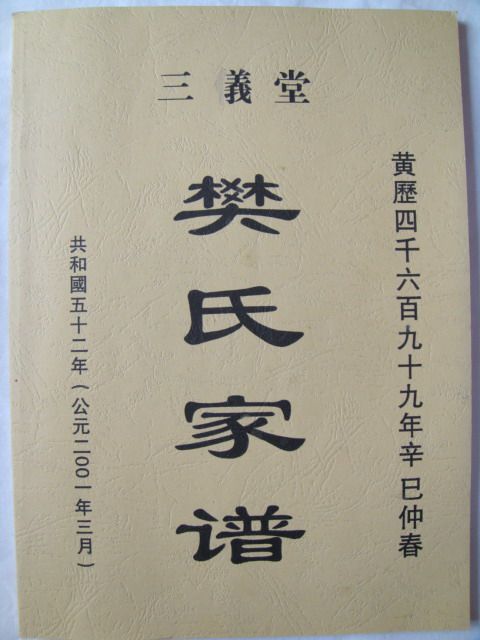 三義堂
黄歷四千六百九十九年辛巳仲春
樊氏家谱
共和國五十二年(公元二00一年三月)